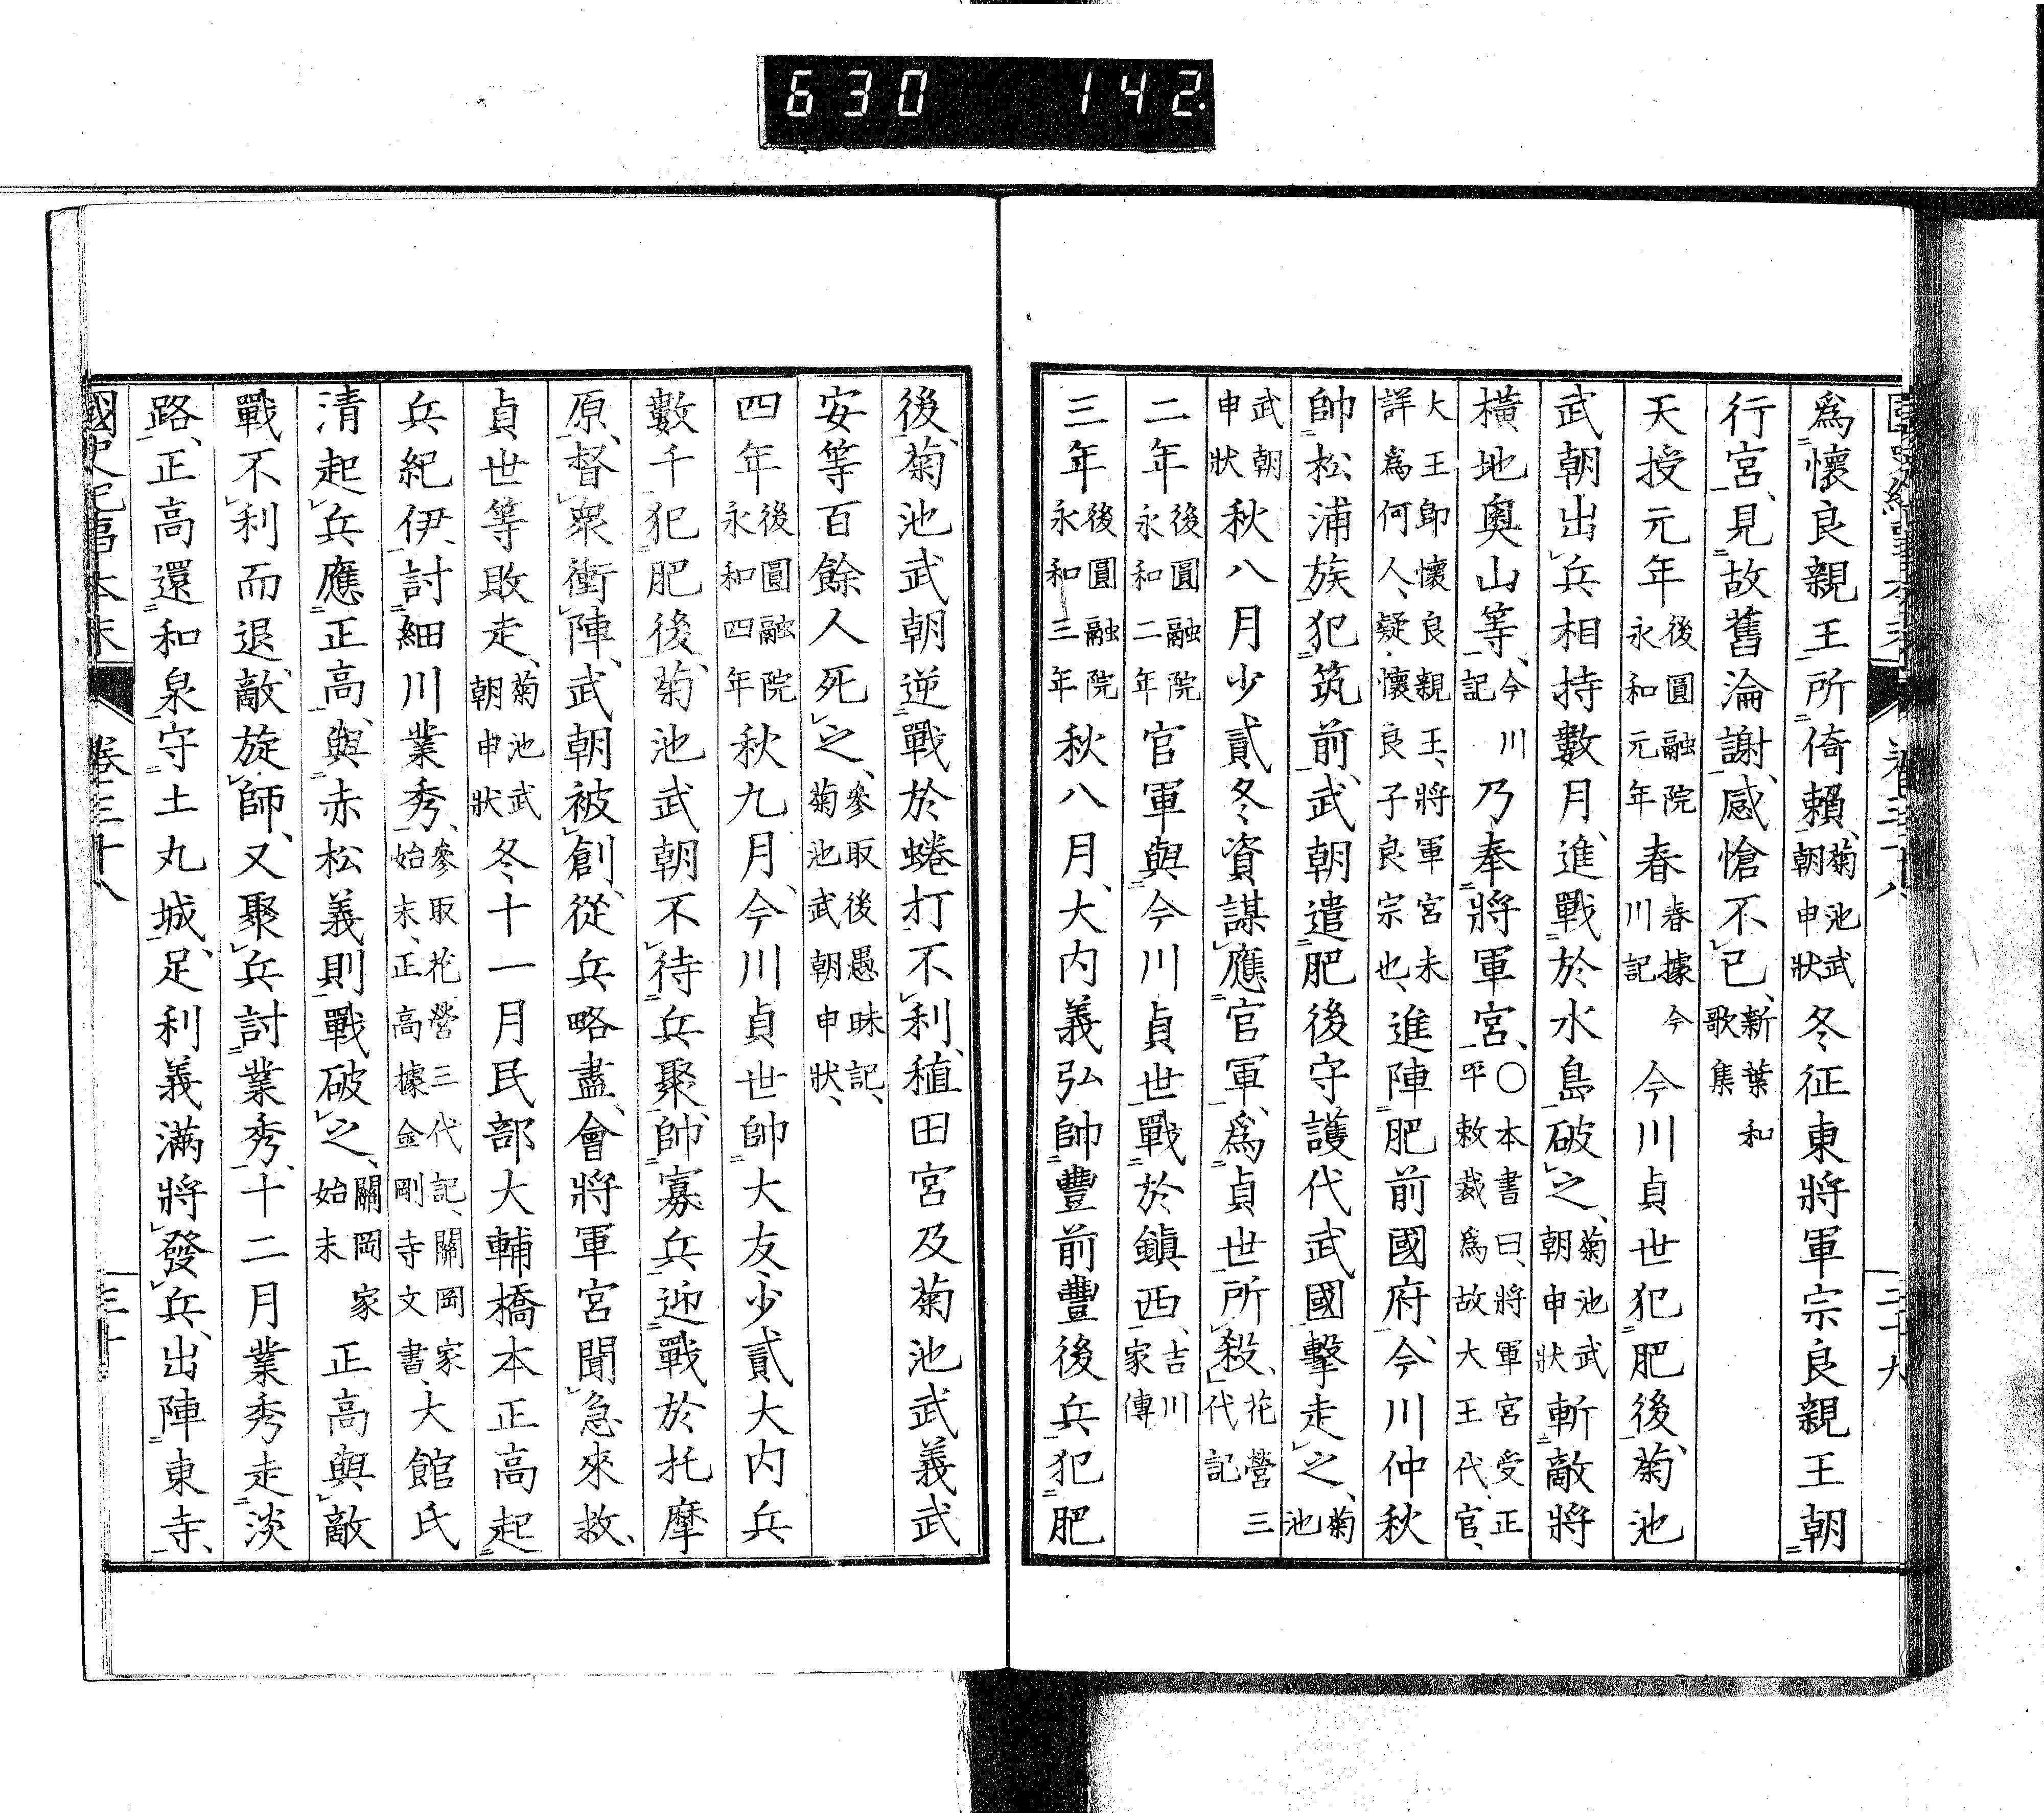 630 142.
爲懷良親王所倚賴、菊池武朝申狀冬征東將軍宗良親王朝
行宮、見故舊淪謝、感愴不已、新葉和歌集
天授元年後圓融院永和元年春春據今川記今川貞世犯肥後、菊池
武朝出兵相持數月、進戰於水島破之、菊池武朝申狀斬敵將
橫地奧山等、今川記乃奉將軍宮、〇本書曰、將軍宮受正平敕裁爲故大王代官、
大王卽懷良親王、將軍宮未詳爲何人、疑懷良子良宗也、進陣肥前國府、今川仲秋
帥松浦族犯筑前、武朝遣肥後守護代武國擊走之、菊池
武朝申狀秋八月少貳冬資謀應官軍、爲貞世所殺、花營三代記
二年後圓融院永和二年官軍與今川貞世戰於鎭西、吉川家傳
三年後圓融院永和三年秋八月、大内義弘帥豐前豐後兵犯肥
後、菊池武朝逆戰於蜷打不利、稙田宮及菊池武義武
安等百餘人死之、參取後愚昧記、菊池武朝申狀、
四年後圓融院永和四年秋九月、今川貞世帥大友少貳大内兵
數千犯肥後、菊池武朝不待兵聚、帥寡兵迎戰於托摩
原、督衆衝陣、武朝被創、從兵略盡、會將軍宮聞急來救、
貞世等敗走、菊池武朝申狀冬十一月民部大輔橋本正高起
兵紀伊、討細川業秀、參取花營三代記、關岡家始末、正高據金剛寺文書、大館氏
清起兵應正高、與赤松義則戰破之、關岡家始末正高與敵
戰不利而退、敵旋師、又聚兵討業秀、十二月業秀走淡
路、正高還和泉守土丸城、足利義滿將發兵、出陣東寺、
國史紀事本末 卷三十八 三十